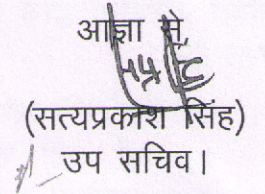 आज्ञा से,
(सत्यप्रकाश सिंह)
उप सचिव।